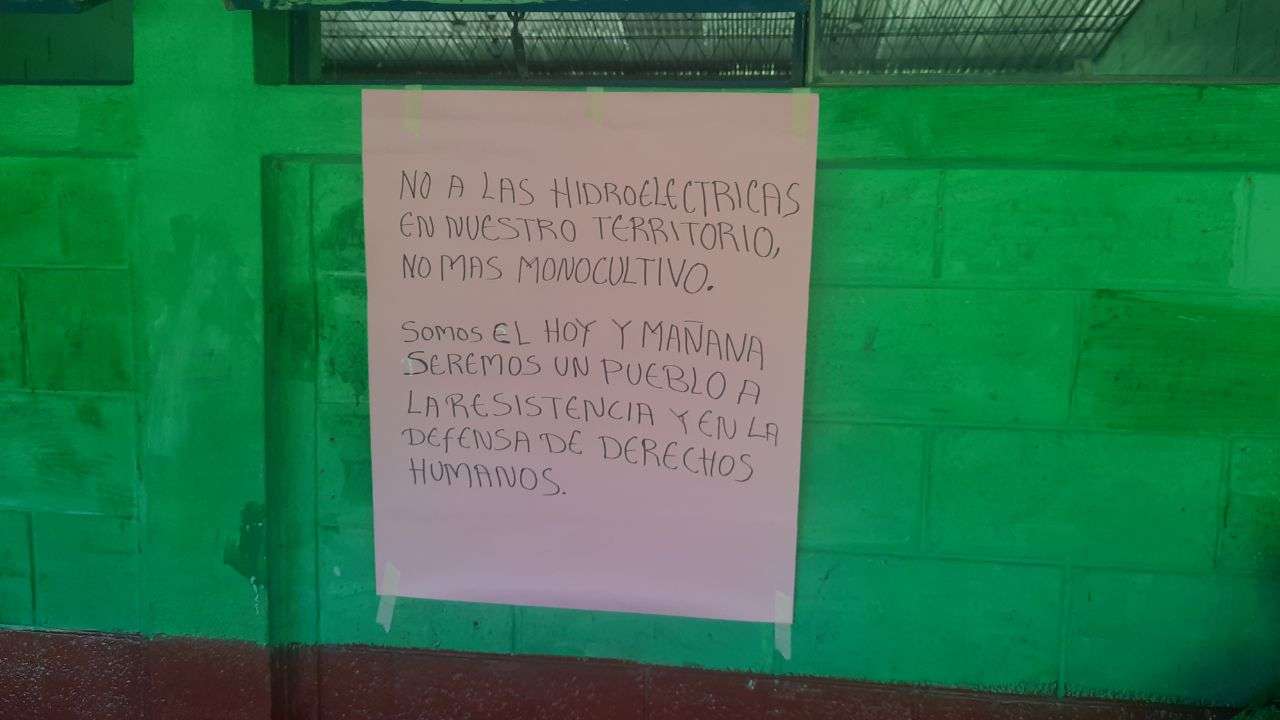 NO A LAS HIDROELECTRICAS
EN NUESTRO TERRITORIO,
NO MAS MONOCULTIVO.
SOMOS EL HOY Y MAÑANA
SEREMOS UN PUEBLO A
LA RESISTENCIA Y EN LA
DEFENSA DE DERECHOS
HUMANOS.